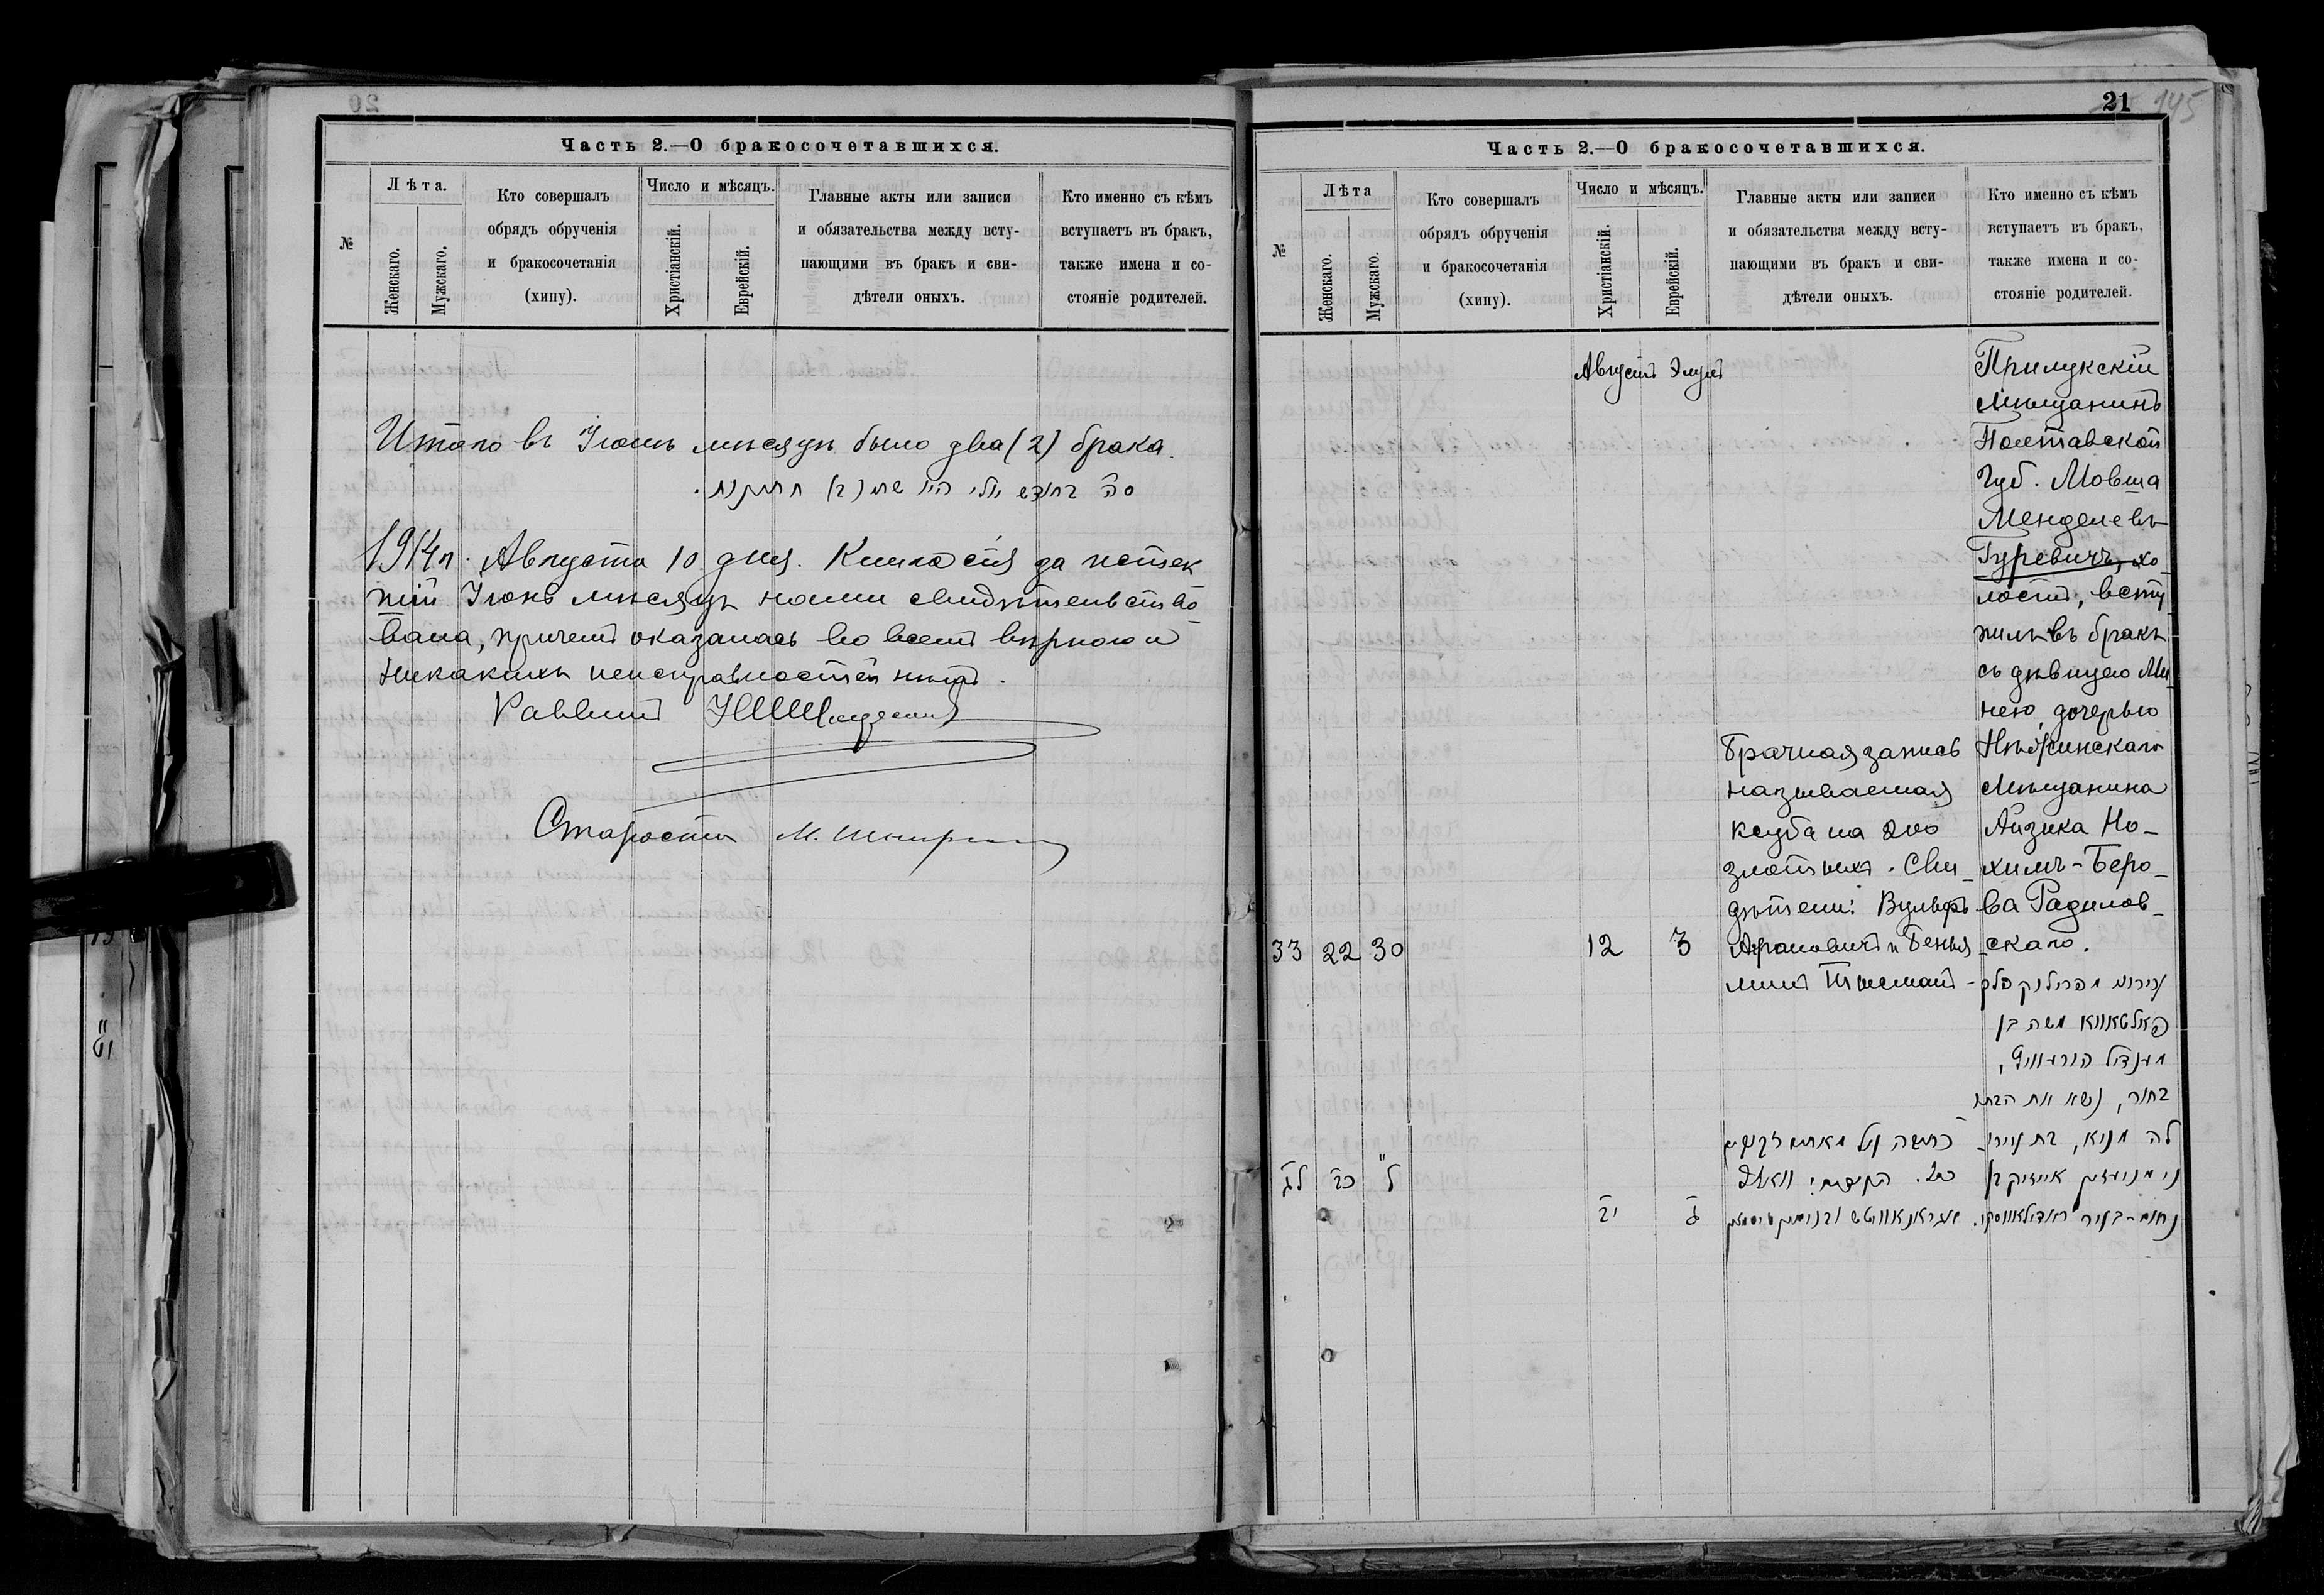 20
Часть 2.—О бракосочетавшихся.
№
Лѣта.
Женскаго.
Мужскаго.
Кто совершалъ
обрядъ обрученія
и бракосочетанія
(хипу).
Число и мѣсяцъ.
Христіанскій.
Еврейскій.
Главные акты или записи
и обязательства между всту-
пающими въ бракъ и сви-
дѣтели оныхъ.
Кто именно съ кѣмъ
вступаетъ въ бракъ,
также имена и со-
стояніе родителей.
Итого въ Іюлѣ мѣсяцѣ было два (2) брака.
סה״כ בחודש יולי היו שתי (ב) חתונות.
1914 г. Августа 10 дня. Книга сія за истек
шій Іюль мѣсяцъ нами свидѣтельство
вана, причемъ оказалась во всемъ вѣрною и
никакихъ неисправностей нѣтъ.
Раввинъ
Староста М.
21
145
Часть 2.—О бракосочетавшихся.
№
Лѣта
Женскаго.
Мужскаго.
Кто совершалъ
обрядъ обрученія
и бракосочетанія
(хипу).
Число и мѣсяцъ.
Христіанскій.
Еврейскій.
Главные акты или записи
и обязательства между всту-
пающими въ бракъ и сви-
дѣтели оныхъ.
Кто именно съ кѣмъ
вступаетъ въ бракъ,
также имена и со-
стояніе родителей.
Августъ Элулъ
33 22 30
12 3
Брачная запись
называемая
ксуба на 200
злотыхъ. Сви-
дѣтели: Вульфъ
Аграновичъ и Бенья
минъ
Прилукскій
Мѣщанинъ
Полтавской
Губ. Мовша
Менделевъ
Гуревичъ, хо-
лостъ, всту
пилъ въ бракъ
съ дѣвицею Ми-
нею, дочерью
Нѣжинскаго
Мѣщанина
Айзика Но-
химъ-Беро-
ва Радилов-
скаго.
לג כב ל
יב ג
עירוני מפרילוק פלך
פאלטאווא משה בן
מענדיל הורוויץ,
בחור, נשא את הבתו
לה מניא, בת עירו-
ני מניעזין אייזיק בן
נחום-בער ראדילאווסקי.